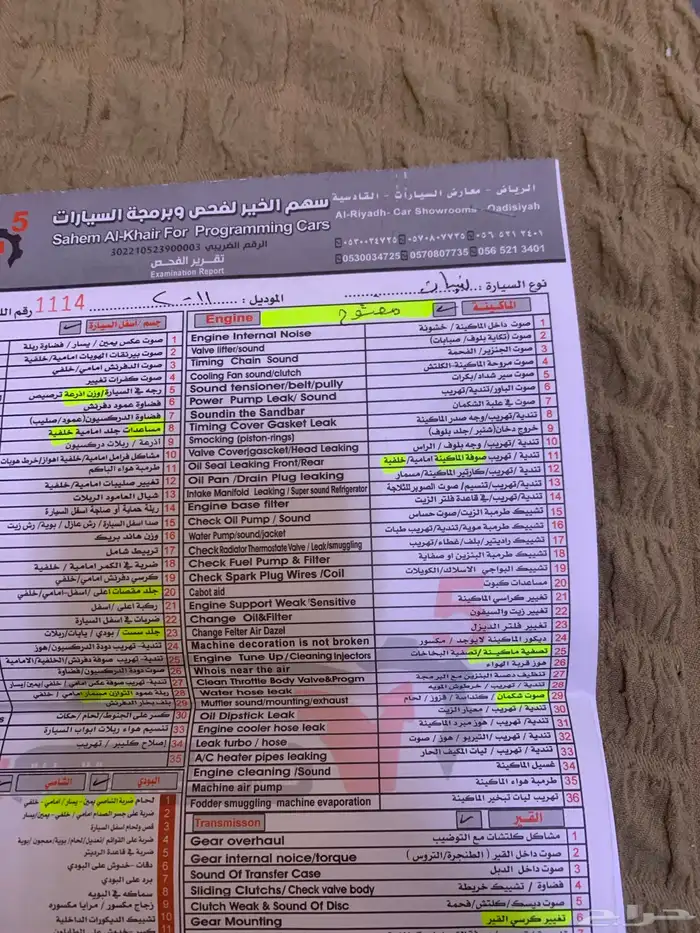 الرياض - معارض السيارات - القادسية
Al-Riyadh- Car Showrooms- Qadisiyah
٠٥٣٠٠٣٤٧٢٥ ٠٥٧٠٨٠٧٧٣٥ ٠٥٦ ٥٢١ ٣٤٠١
0530034725 0570807735 056 521 3401
5
سهم الخير لفحص وبرمجة السيارات
Sahem Al-Khair For Programming Cars
الرقم الضريبي 302210523900003
تقرير الفحص
Examination Report
نوع السيارة :
الموديل : ٢٠١١
1114
الماكينة
Engine
1 صوت داخل الماكينة / خشونة Engine Internal Noise
2 صوت (تكاية بلوف/ صبابات) Valve lifter/sound
3 صوت الجنزير/ الفحمة Timing Chain Sound
4 صوت مروحة الماكينة-الكلتش Cooling Fan sound/clutch
5 صوت سير شداد/بكرات Sound tensioner/belt/pully
6 صوت الباور/تندية/تهريب Power Pump Leak/ Sound
7 صوت في علبة الشكمان Soundin the Sandbar
8 تندية/تهريب/وجه صدر الماكينة Timing Cover Gasket Leak
9 خروج دخان (شنبر/ جلد بلوف) Smocking (piston-rings)
10 تندية/ تهريب/وجه بلوف/ الراس Valve Coverjgascket/Head Leaking
11 تندية/ تهريب صوفة الماكينة امامية/خلفية Oil Seal Leaking Front/Rear
12 تندية/ تهريب/كارتير الماكينة/مسمار Oil Pan /Drain Plug leaking
13 تندية/تهريب/تنسيم/ صوت الصوبر للثلاجة Intake Manifold Leaking / Super sound Refrigerator
14 تندية/ تهريب/في قاعدة فلتر الزيت Engine base filter
15 تشييك طرمبة الزيت/صوت حساس Check Oil Pump / Sound
16 تشييك طرمبة موية/تندية/تهريب طبات Water Pump/sound/jacket
17 تشييك راديتير/بلف/غطاء/تهريب Check Radiator Thermostate Valve / Leak/smuggling
18 تشييك طرمبة البنزين او صفاية Check Fuel Pump & Filter
19 تشييك البواجي الاسلاك/الكويلات Check Spark Plug Wires /Coil
20 مساعدات كبوت Cabot aid
21 تغيير كراسي الماكينة Engine Support Weak 'Sensitive
22 تغيير زيت والسيفون Change Oil&Filter
23 تغيير فلتر الديزل Change Felter Air Dazel
24 ديكور الماكينة لايوجد / مكسور Machine decoration is not broken
25 تصفية ماكينة/تصفية البخاخات Engine Tune Up/Cleaning Injectors
26 هوز قربة الهواء Whois near the air
27 تنظيف دعسة البنزين مع البرمجة Clean Throttle Body Valve&Progm
28 تندية / تهريب / خرطوش المويه Water hose leak
29 صوت شكمان / كنداسة / قزوز / لحام Muffler sound/mounting/exhaust
30 تندية / تهريب / معيار الزيت Oil Dipstick Leak
31 تندية / تهريب / هوز مبرد الماكينة Engine cooler hose leak
32 تندية / تهريب /التيربو / هوز / صوت Leak turbo / hose
33 تندية / تهريب / ليات المكيف الحار A/C heater pipes leaking
34 غسيل الماكينة Engine cleaning /Sound
35 طرمبة هواء الماكينة Machine air pump
36 تهريب ليات تبخير الماكينة Fodder smuggling machine evaporation
القير
Transmisson
1 مشاكل كلتشات مع التوضيب Gear overhaul
2 صوت داخل القير (الطنجرة/التروس) Gear internal noise/torque
3 صوت داخل الدبل Sound Of Transfer Case
4 فضاوة / تشييك خريطة Sliding Clutchs/Check valve body
5 صوت ديسك/كلتش/فحمة Clutch Weak & Sound Of Disc
6 تغيير كرسي القير Gear Mounting
جسم / اسفل السيارة
1 صوت عكس يمين / يسار / فضاوة ريلة
2 صوت بيرنقات الهوبات امامية/خلفية
3 صوت الدفرنش امامي/خلفي
4 صوت كفرات تغيير
5 رجه في السيارة/وزن اذرعة ترصيص
6 فضاوة عمود دفرنش
7 فضاوة الدركسيون (عمود/صليب)
8 مساعدات جلد امامية خلفية
9 اذرعة / ربلات دركسيون
10 مشاكل فرامل امامية/خلفية اهواز/خرط هوبات
11 طرمبة هواء الباكم
12 تغيير صليبات امامية/خلفية
13 شيال العامود الربلات
14 ربلة حماية او صلجة اسفل السيارة
15 صدا اسفل السيارة / رش عازل / بوية / رش زيت
16 وزن هاند بريك
17 تربيط شامل
18 ضربة في الكمر امامية / خلفية
19 كرسي دفرنش امامي/خلفي
20 جلد مقصات اعلى / اسفل-امامي/خلفي
21 ركبة اعلى / اسفل
22 ضربات في اسفل السيارة
23 جلد سست / بودي / يايات/ربلات
24 تندية- تهريب دودة الدركسيون/هوز
25 تندية- تهريب صوفة دفرنش/الخلفية/الامامية
26 صوت دودة الدركسيون/فضاوة
27 تندية- تهريب صوفة عكس امامي/خلفي/يمين/يسار
28 ربلة عمود التوازن مسمار امامي / خلفي
29 بلف بخار الدفرنش
30 كسر على الجنوط/لحام/حكات
33 تنسيم هواء ربلات ابواب السيارة
34 إصلاح كليبر / تهريب
35
الشاصي
البودي
1 لحام ضربة الشاصي يمين - يسار / امامي - خلفي
2 ضربة على جسر الصدام امامي / خلفي-يمين/يسار
3 قص ولحام اسفل السيارة
4 ضربة على القوائم /تعديل/لحام/بوية/معجون/بوية
5 ضربة في قاعدة الرديتر
6 دقات - خدوش على البودي
7 برد على البودي
8 سماكه في البويه
9 زجاج مكسور / مرايا مكسوره
10 تشييك الديكورات الداخلية
حراج